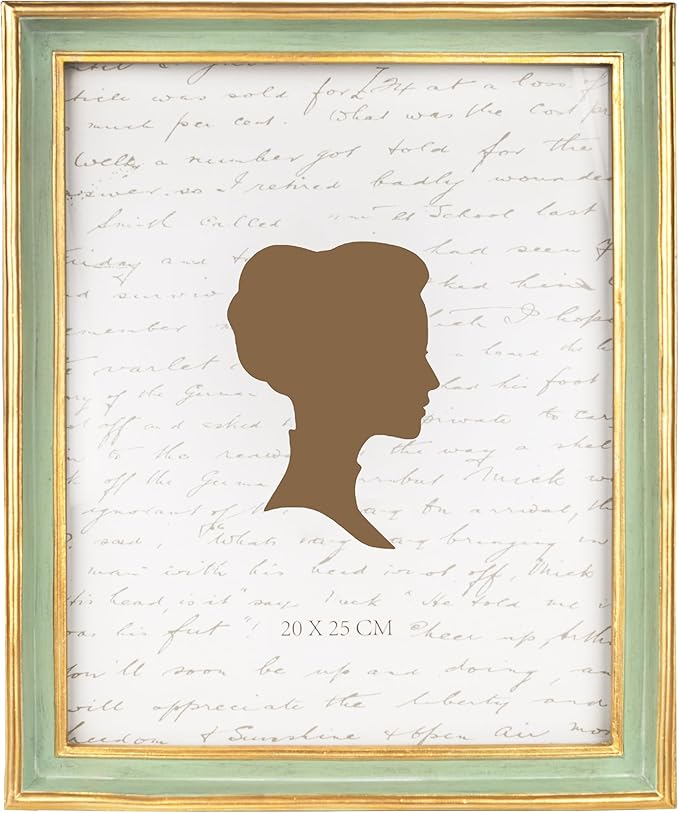 article was sold for £24 at a loss of
much per cent. What was the cost pr
Well a number got told for the
answer. so I retired badly wounde
Smith called at School last
Friday and to had seen
and surviv ked him
emember which I hope
e varlet a haned the
ry of the German had his foot
ot off and asked Private to car-
to the rea the way a shel
k off the Germa but Mick w
ignorant of t on arrival, the
said, "Whats bringing in
man with his head is not off, Mick
His head, is it" say Mick" He told me i
was his fut"! Cheer up, Arth
20 X 25 CM
You'll soon be up and doing, an
will appreciate the liberty and
freedom & Sunshine & open Air mos